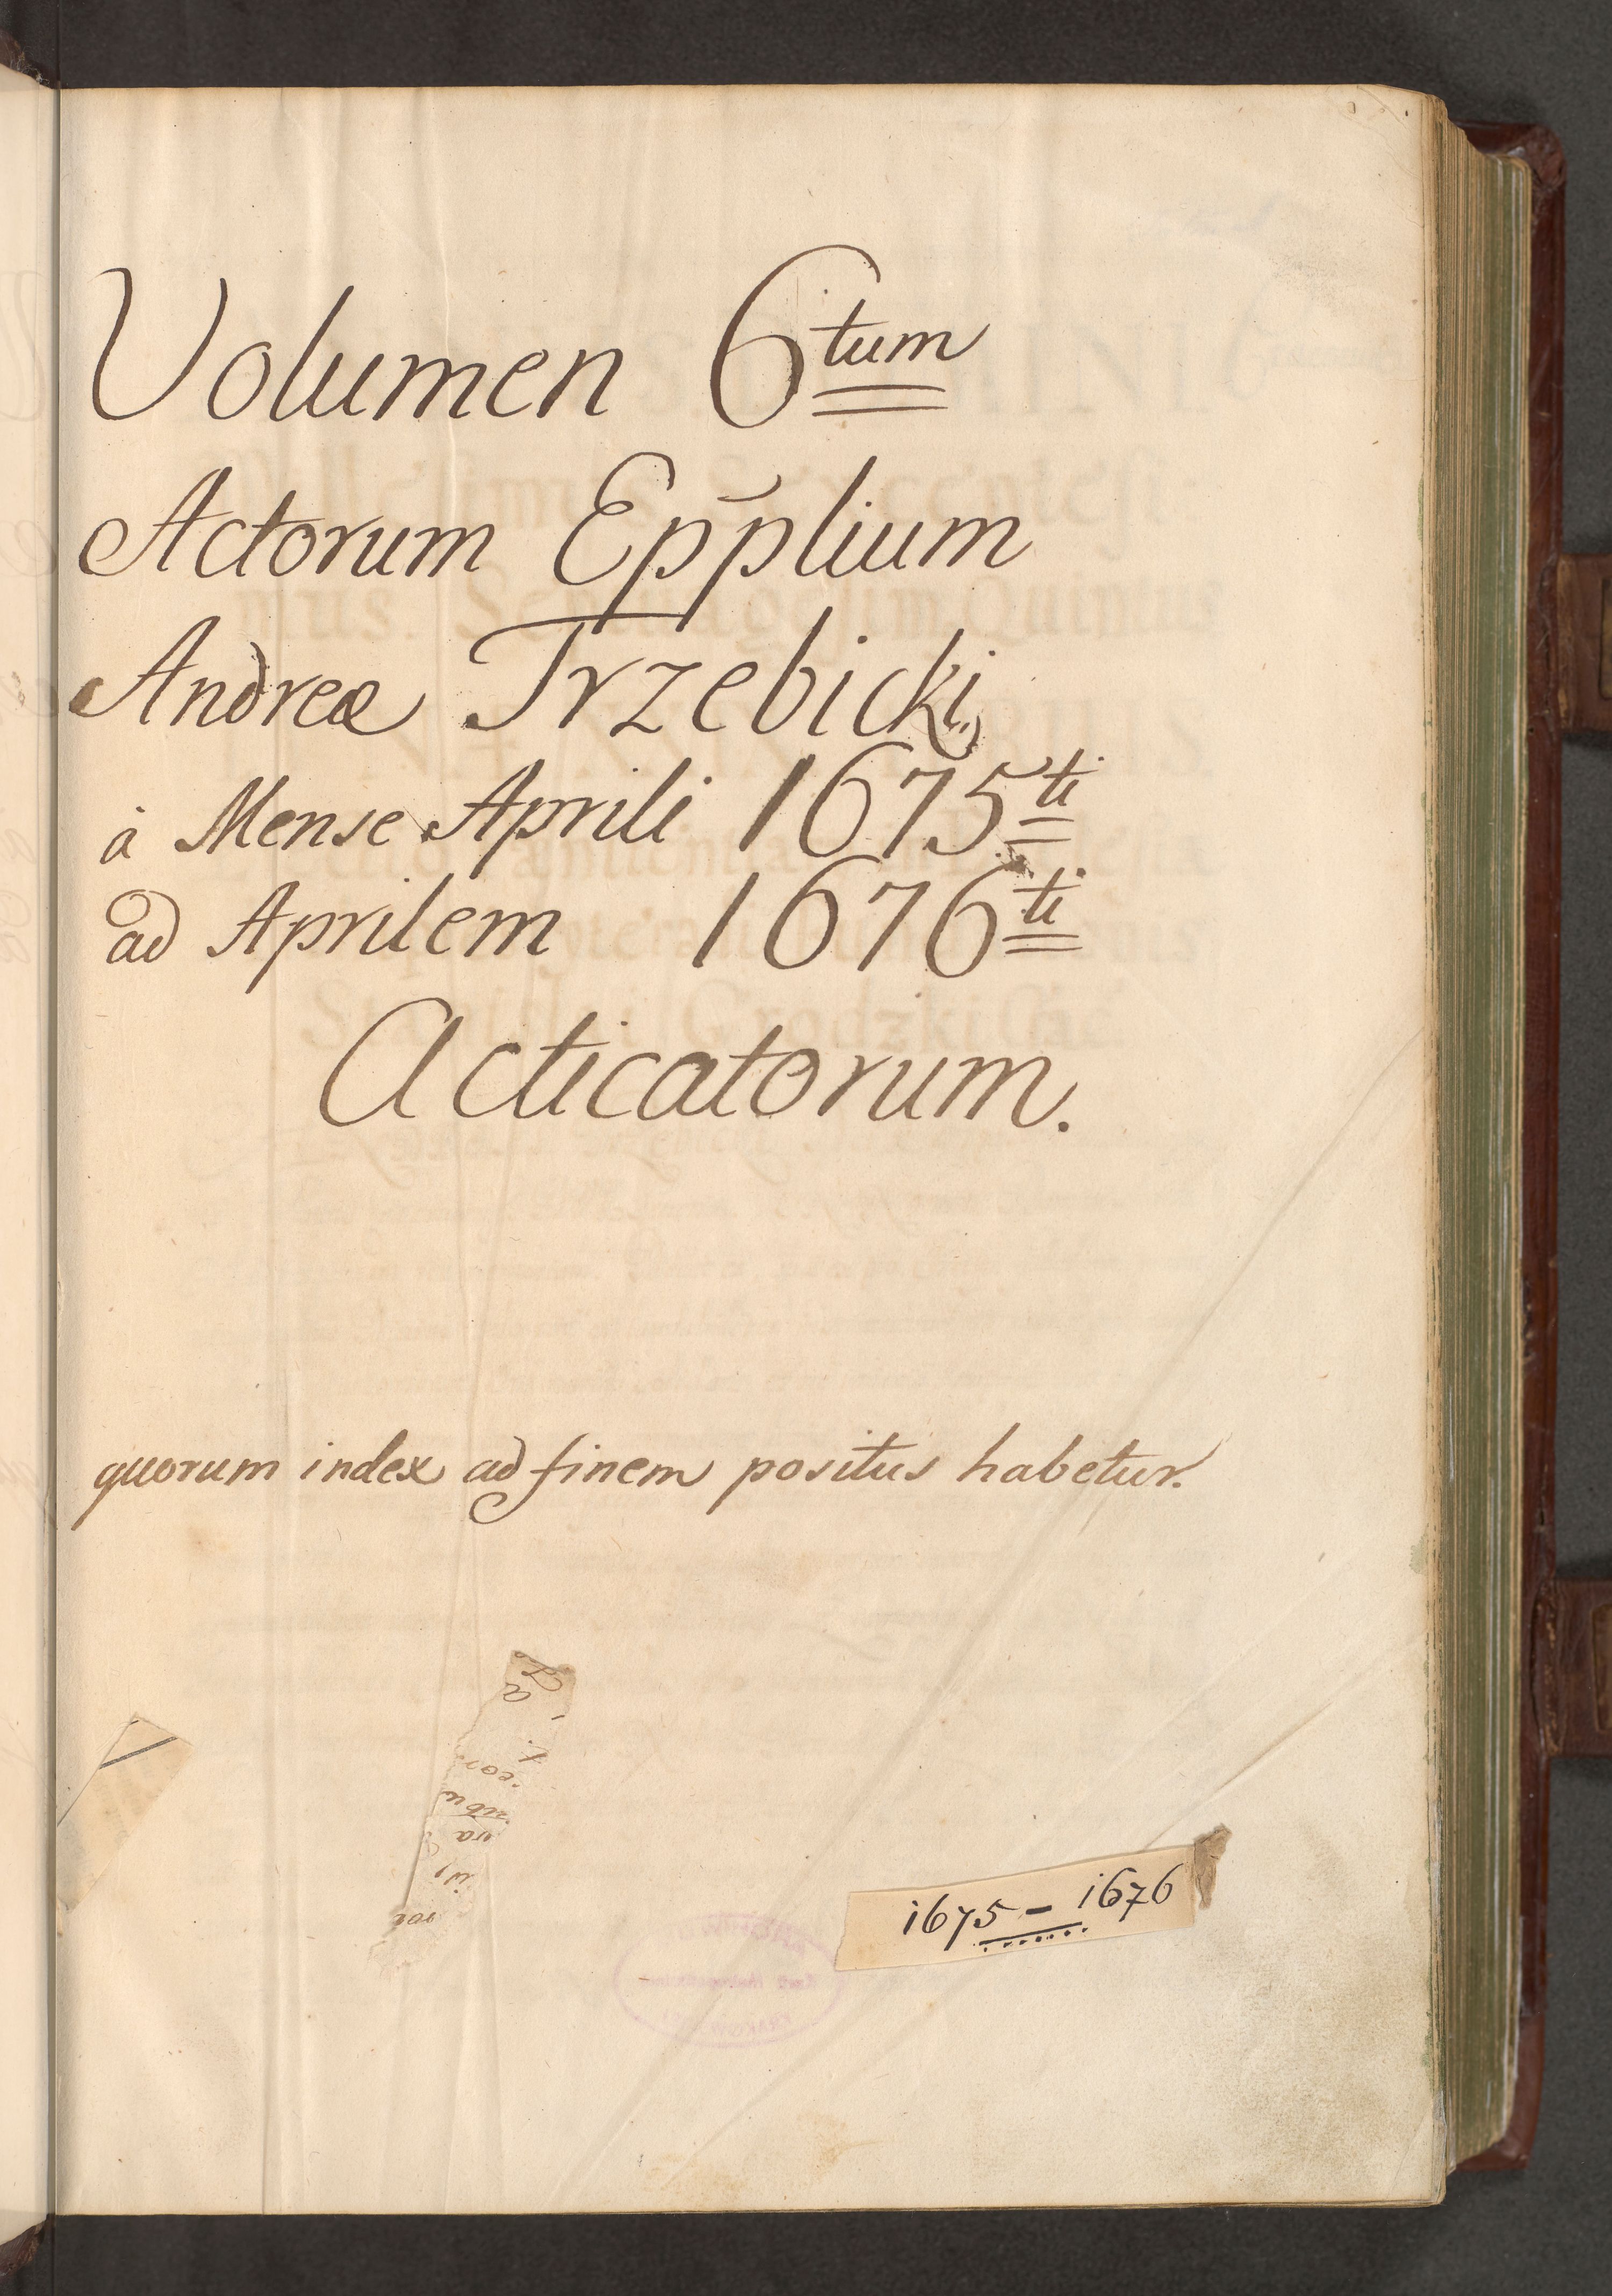 Volumen 6tum
Actorum Epp̄lium
Andreæ Trzebicki,
à Mense Aprili 1675ti
ad Aprilem 1676ti
Acticatorum.
quorum index ad finem positus habetur.
1675 - 1676